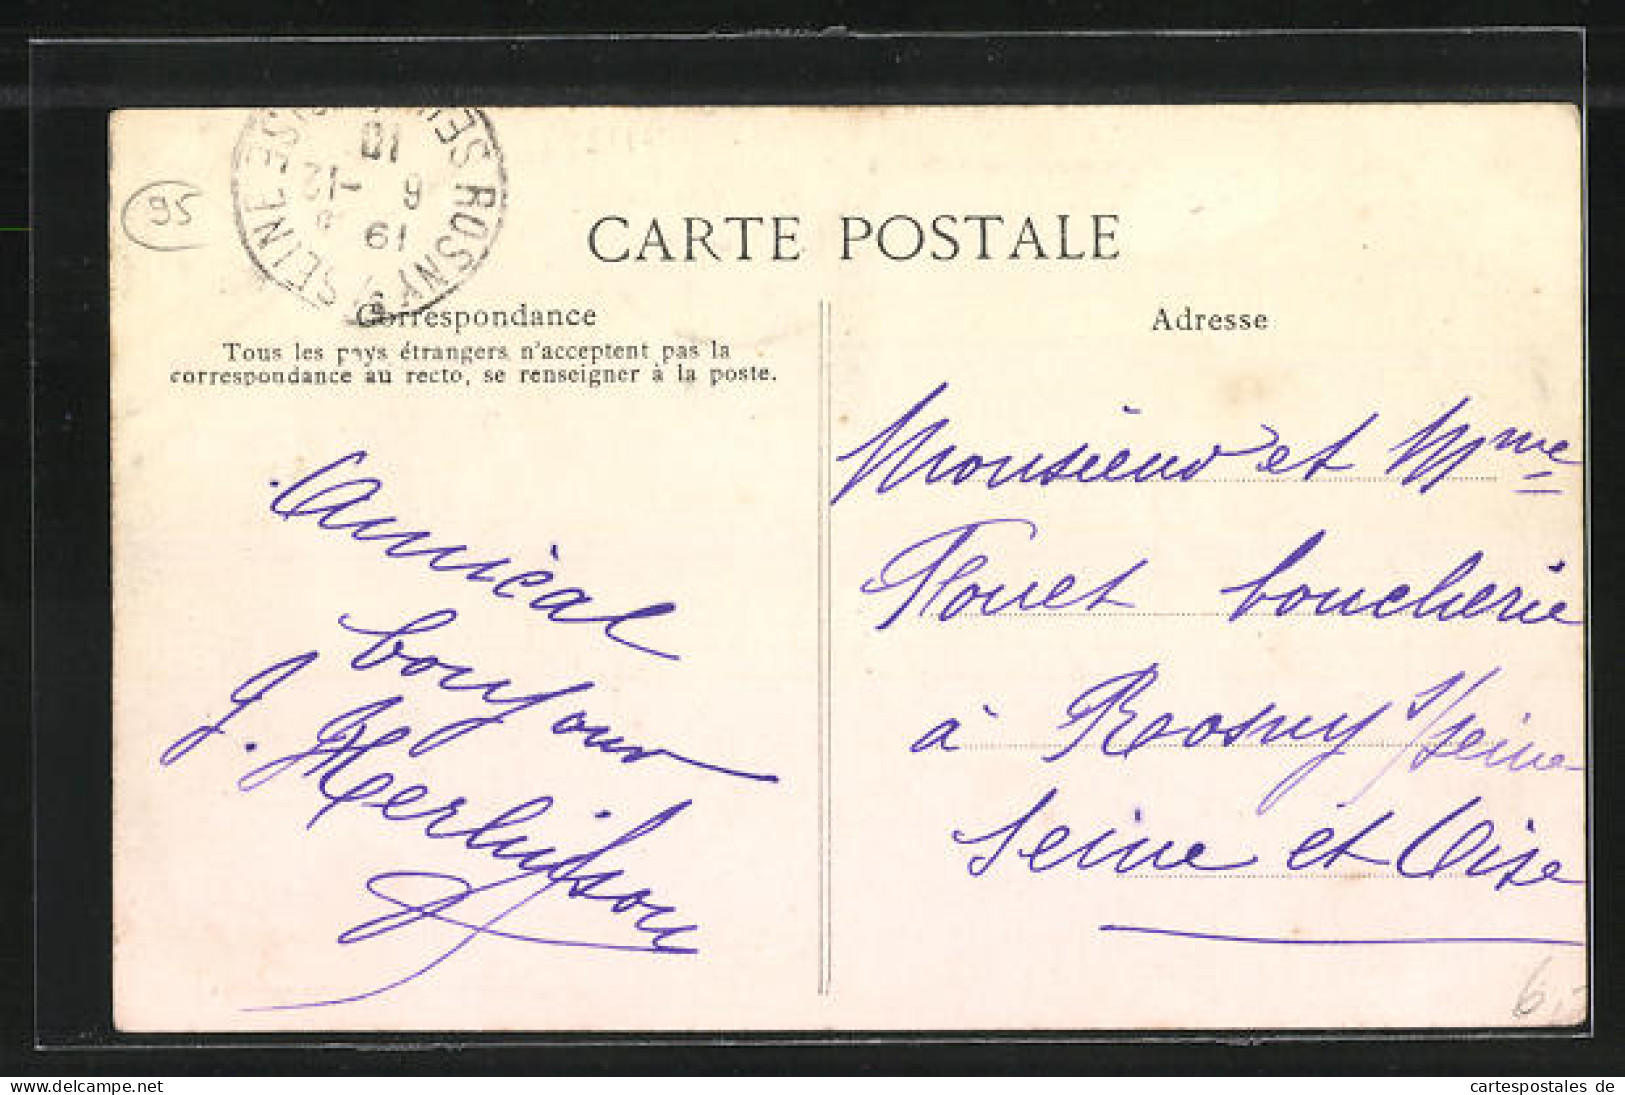 95
ROSNY S/ SEINE SEINE
10
6 -12
19
CARTE POSTALE
Correspondance
Tous les pays étrangers n'acceptent pas la
correspondance au recto, se renseigner à la poste.
Amical
bonjour
J.
Adresse
Monsieur et Mme
Flouet boucherie
à Rosny s/seine
Seine et Oise
6
cartespostales.de
cartespostales de